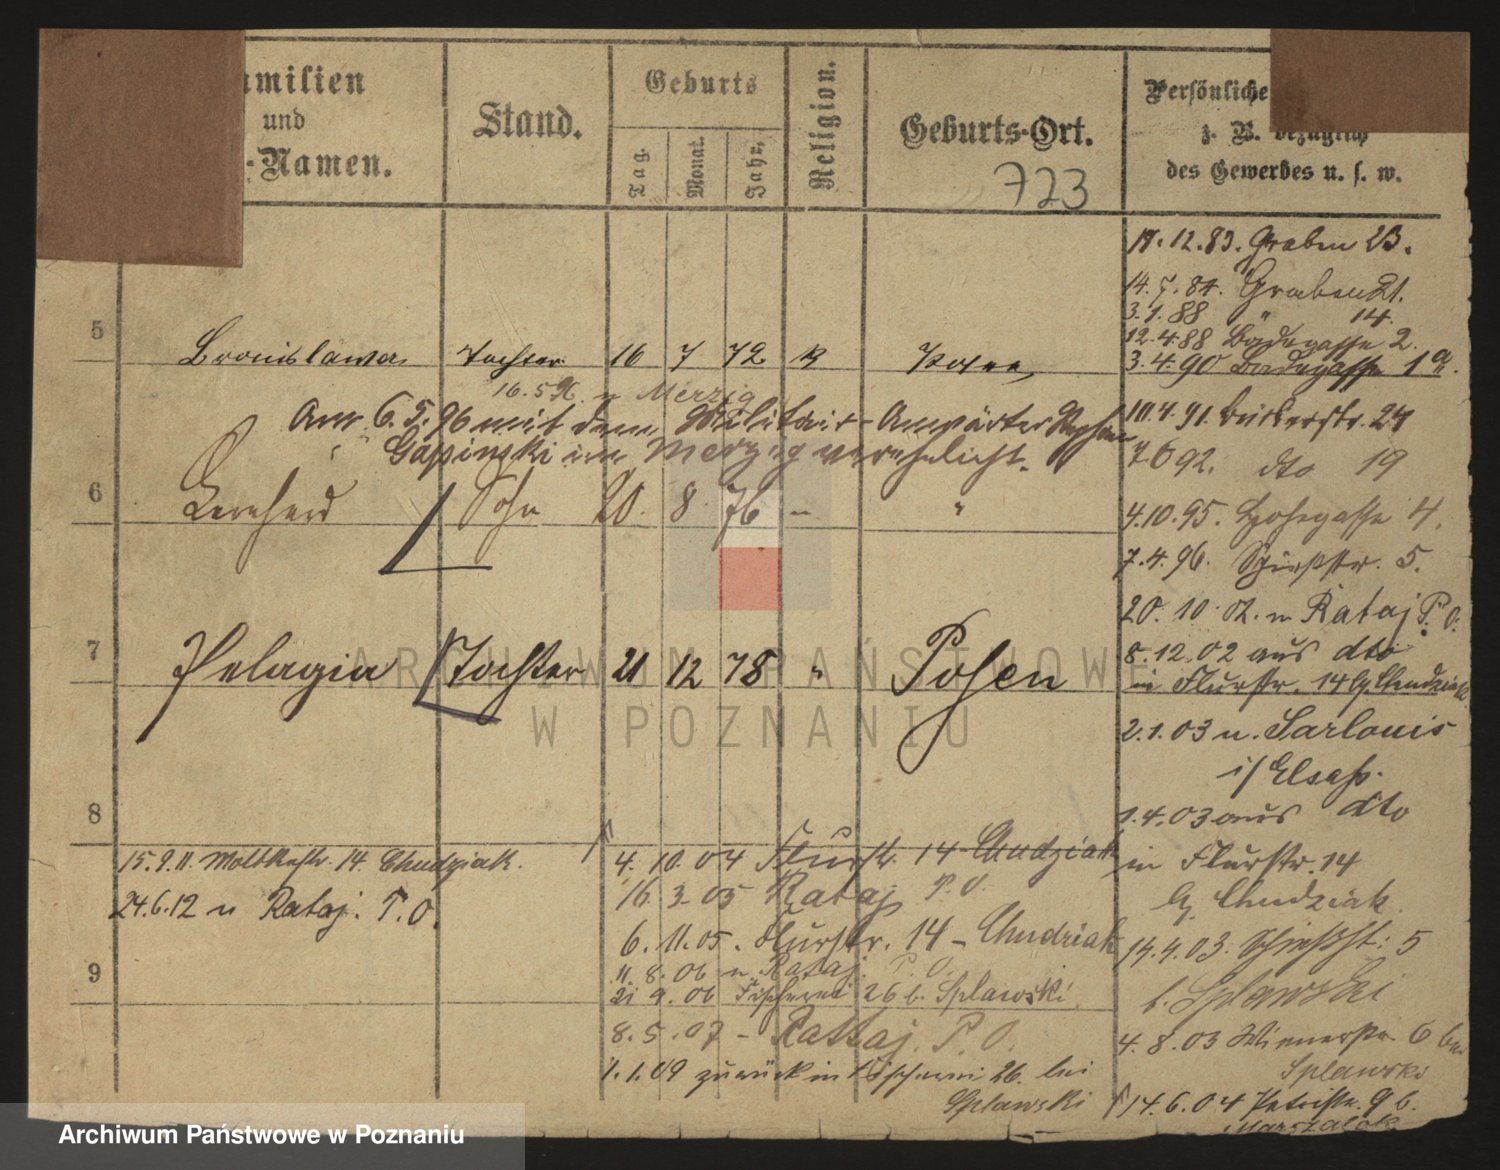 amilien
und
-Namen.
Stand.
Geburts
Tag.
Monat.
Jahr.
Religion.
Geburts-Ort.
723
Persönliche
z. B. bezüglich
des Gewerbes u. s. w.
5 Bronislawa Tochter 16 7 72 k Posen
16.5.96 n Merzig
Am 6.5.96 mit dem Militair-Anwärter
Gapinski in Merzig verehelicht.
6 Bernhard Sohn 20. 8. 76 - "
7 Pelagia Tochter 21 12 78 " Posen
8
15.9.11. Moltkestr. 14. Chudziak.
24.6.12 n Rataj. P.O.
9
4. 10. 04 Flurstr. 14 Chudziak
16. 3. 05 Rataj P.O.
6. 11. 05. Flurstr. 14 - Chudziak
11. 8. 06 n Rataj P.O.
21 9. 06 Fischerei 26 b. Splawski
8. 5. 07 - Rattaj. P. O.
1. 1. 09 zurück in Fischerei 26. bei
Splawski
17.12.83. Graben 2B.
14.5.84. Graben 21.
3.1.88 " 14.
12.4.88 Badegasse 2.
3.4.90 Badegasse 1a.
10.4.91. 24
7.6 92. dto 19
4.10.95. 4.
7.4.96. Schießstr. 5.
20. 10. 02. n Rataj P.O.
8.12.02 aus dto
in Flurstr. 14 b/ Chudziak
2.1.03 n. Sarlouis
i/ Elsaß.
1.4.03 aus dto
in Flurstr. 14
b/ Chudziak
14.4.03. Schießst: 5
b. Splawski
4. 8. 03 Wienerstr. 6 bei
Splawski
14.6.04 Petristr. 9 b.
Marszalek
ARCHIWUM PAŃSTWOWE
W POZNANIU
Archiwum Państwowe w Poznaniu